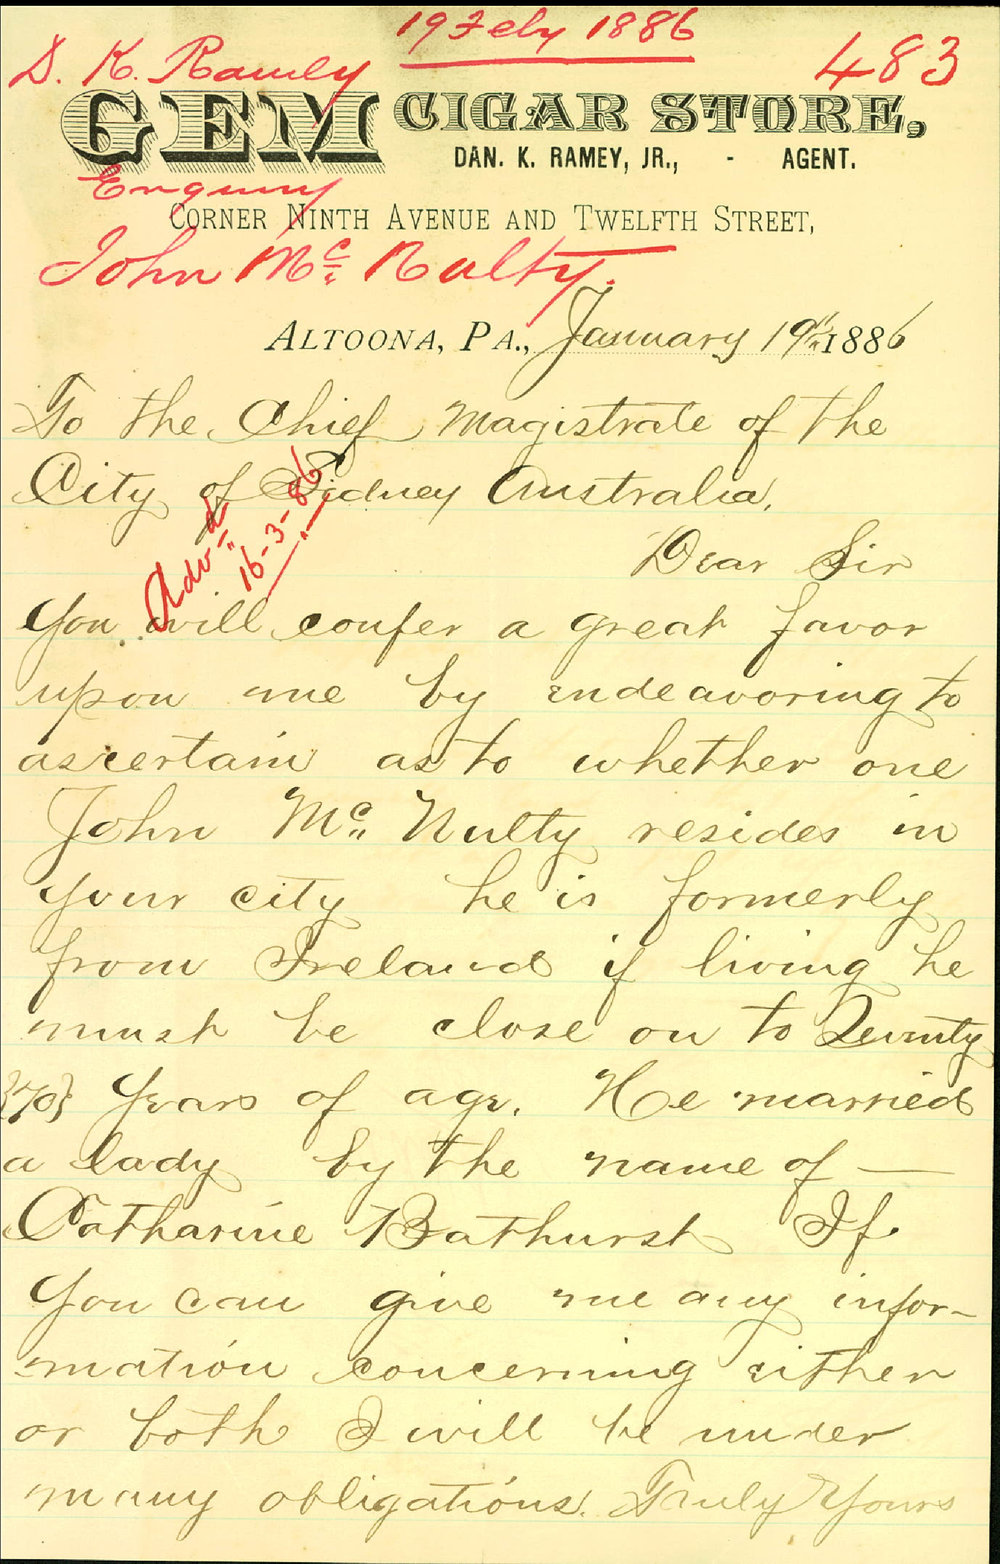 19 Feby 1886
D. K. Ramey
483
GEM CIGAR STORE,
DAN. K. RAMEY, JR., - AGENT.
Enquiry
CORNER NINTH AVENUE AND TWELFTH STREET,
John Mc. Nulty.
ALTOONA, PA., January 19th 1886
To the Chief Magistrate of the
City of Sidney Australia.
Advd 16-3-86
Dear Sir
You will confer a great favor
upon me by endeavoring to
ascertain as to whether one
John Mc. Nulty resides in
your city he is formerly
from Ireland if living he
must be close on to Seventy
{70} years of age. He married
a lady by the name of —
Catharine Bathurst If
you can give me any infor-
mation concerning either
or both I will be under
many obligations. Truly Yours